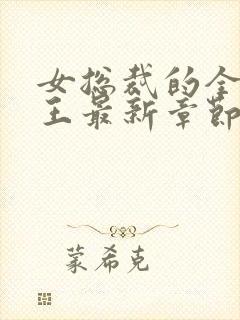 女总裁的全
王最新章节
蒙希克